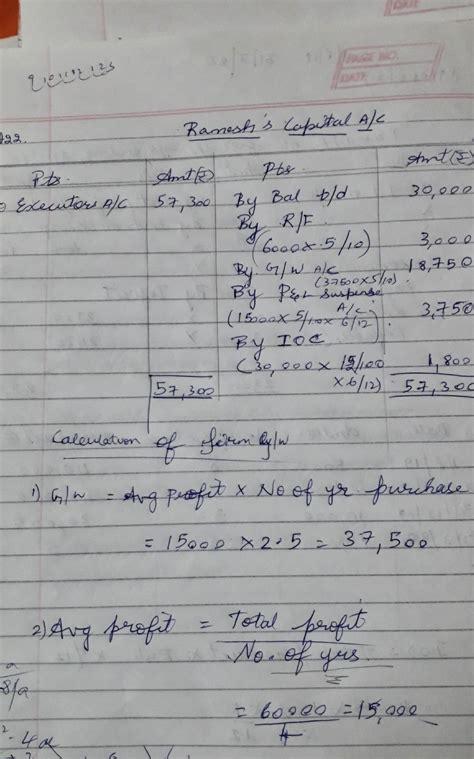 PAGE NO.
DATE
9,10,11,12,13
A22.
Ramesh's Capital A/C
Pts. Amt(₹) Pts. Amt(₹)
Executors A/C 57,300 By Bal b/d 30,000
By R/F
(6000 x 5/10) 3,000
By G/W A/C 18,750
(37500 x 5/10)
By P&L Suspense A/C
(15000 x 5/10 x 6/12) 3,750
By IOC
(30,000 x /100 x 6/12) 1,800
57,300 57,300
Calculation of firm G/W
1) G/W = Avg profit x No of yr purchase
= 15000 x 2.5 = 37,500
2) Avg profit = Total profit
No. of yrs
= 60000 = 15,000
4